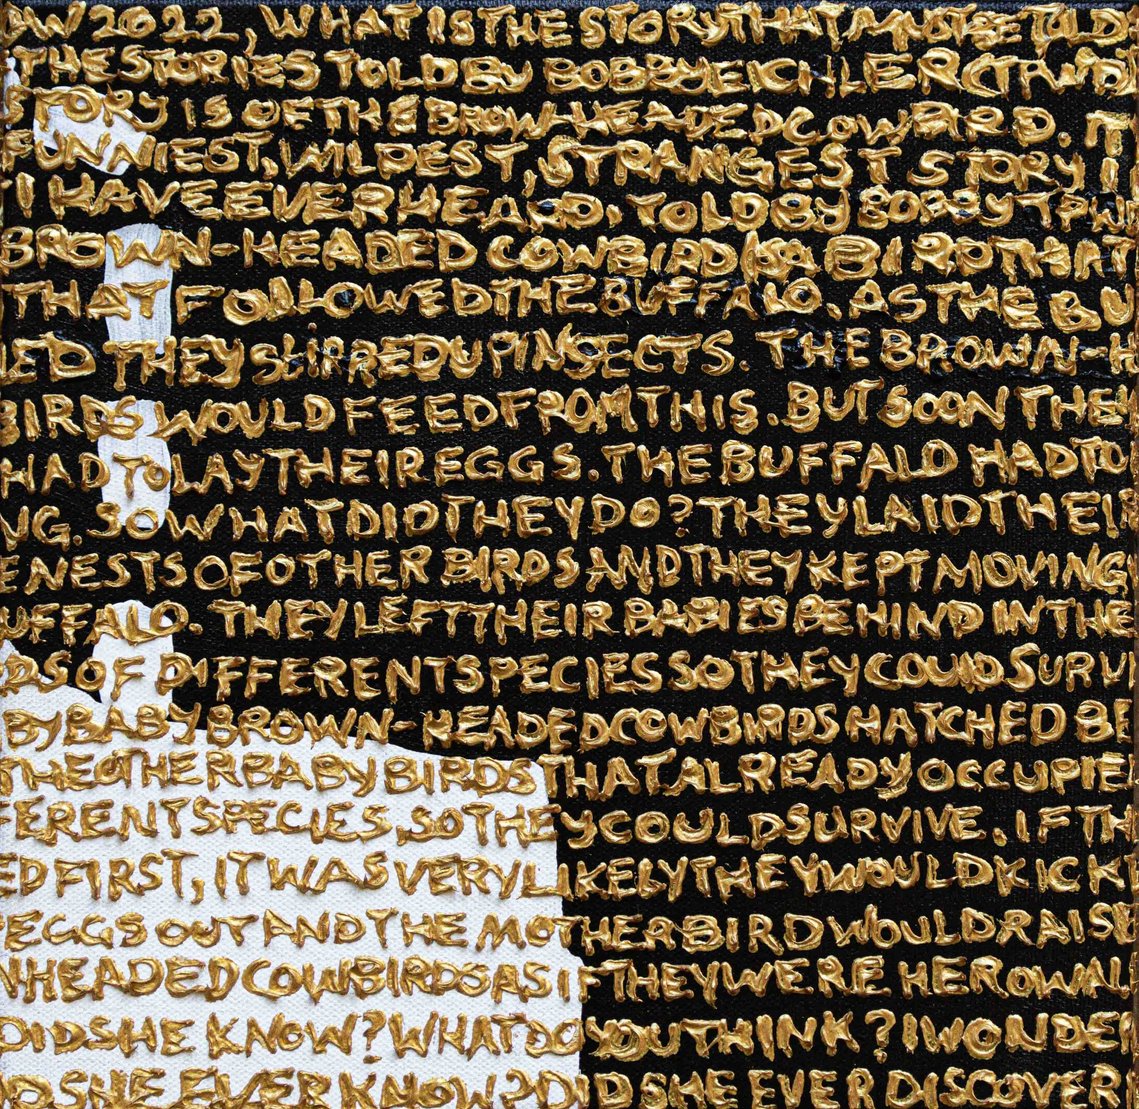 AW 2022, WHAT IS THE STORY THAT MUST BE TOLD
THE STORIES TOLD BY BOBBY EICHLER (TAWD
STORY IS OF THE BROWN-HEADED COWBIRD. IT
FUNNIEST, WILDEST, STRANGEST STORY, I
I HAVE EVER HEARD. TOLD BY BOBBY TPW
BROWN-HEADED COWBIRD IS A BIRD THAT
THAT FOLLOWED THE BUFFALO. AS THE BU
ED THEY STIRRED UP INSECTS. THE BROWN-H
BIRDS WOULD FEED FROM THIS. BUT SOON THE
HAD TO LAY THEIR EGGS. THE BUFFALO HAD TO
NG. SO WHAT DID THEY DO? THEY LAID THEI
E NESTS OF OTHER BIRDS AND THEY KEPT MOVING
UFFALO. THEY LEFT THEIR BABIES BEHIND IN THE
DS OF DIFFERENT SPECIES SO THEY COULD SURVI
BY BABY BROWN-HEADED COWBIRDS HATCHED BE
THE OTHER BABY BIRDS THAT ALREADY OCCUPIE
FERENT SPECIES SO THEY COULD SURVIVE. IF TH
ED FIRST, IT WAS VERY LIKELY THEY WOULD KICK
EGGS OUT AND THE MOTHER BIRD WOULD RAISE
NHEADED COWBIRDS AS IF THEY WERE HER OWN.
DID SHE KNOW? WHAT DO YOU THINK? I WONDE
D SHE EVER KNOW? DID SHE EVER DISCOVER